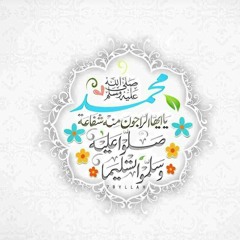 صلى الله
عليه وسلم
محمد
يا أيها الراجون منه شفاعة
صلوا عليه
وسلموا تسليما